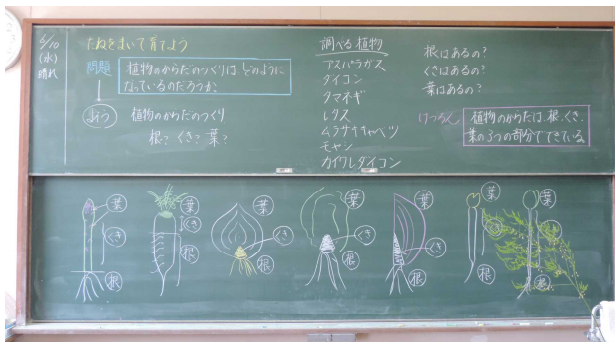 6/10
(水)
晴れ
たねをまいて育てよう
問題
植物のからだのつくりは どのように
なっているのだろうか。
植物のからだのつくり
根? くき? 葉?
調べる植物
アスパラガス
ダイコン
タマネギ
レタス
ムラサキキャベツ
モヤシ
カイワレダイコン
根はあるの?
くきはあるの?
葉はあるの?
けつろん
植物のからだは、根、くき、
葉の3つの部分でできている。
葉
くき
根
葉
くき
根
葉
くき
根
葉
くき
根
葉
くき
根
葉
くき
根
葉
くき
根